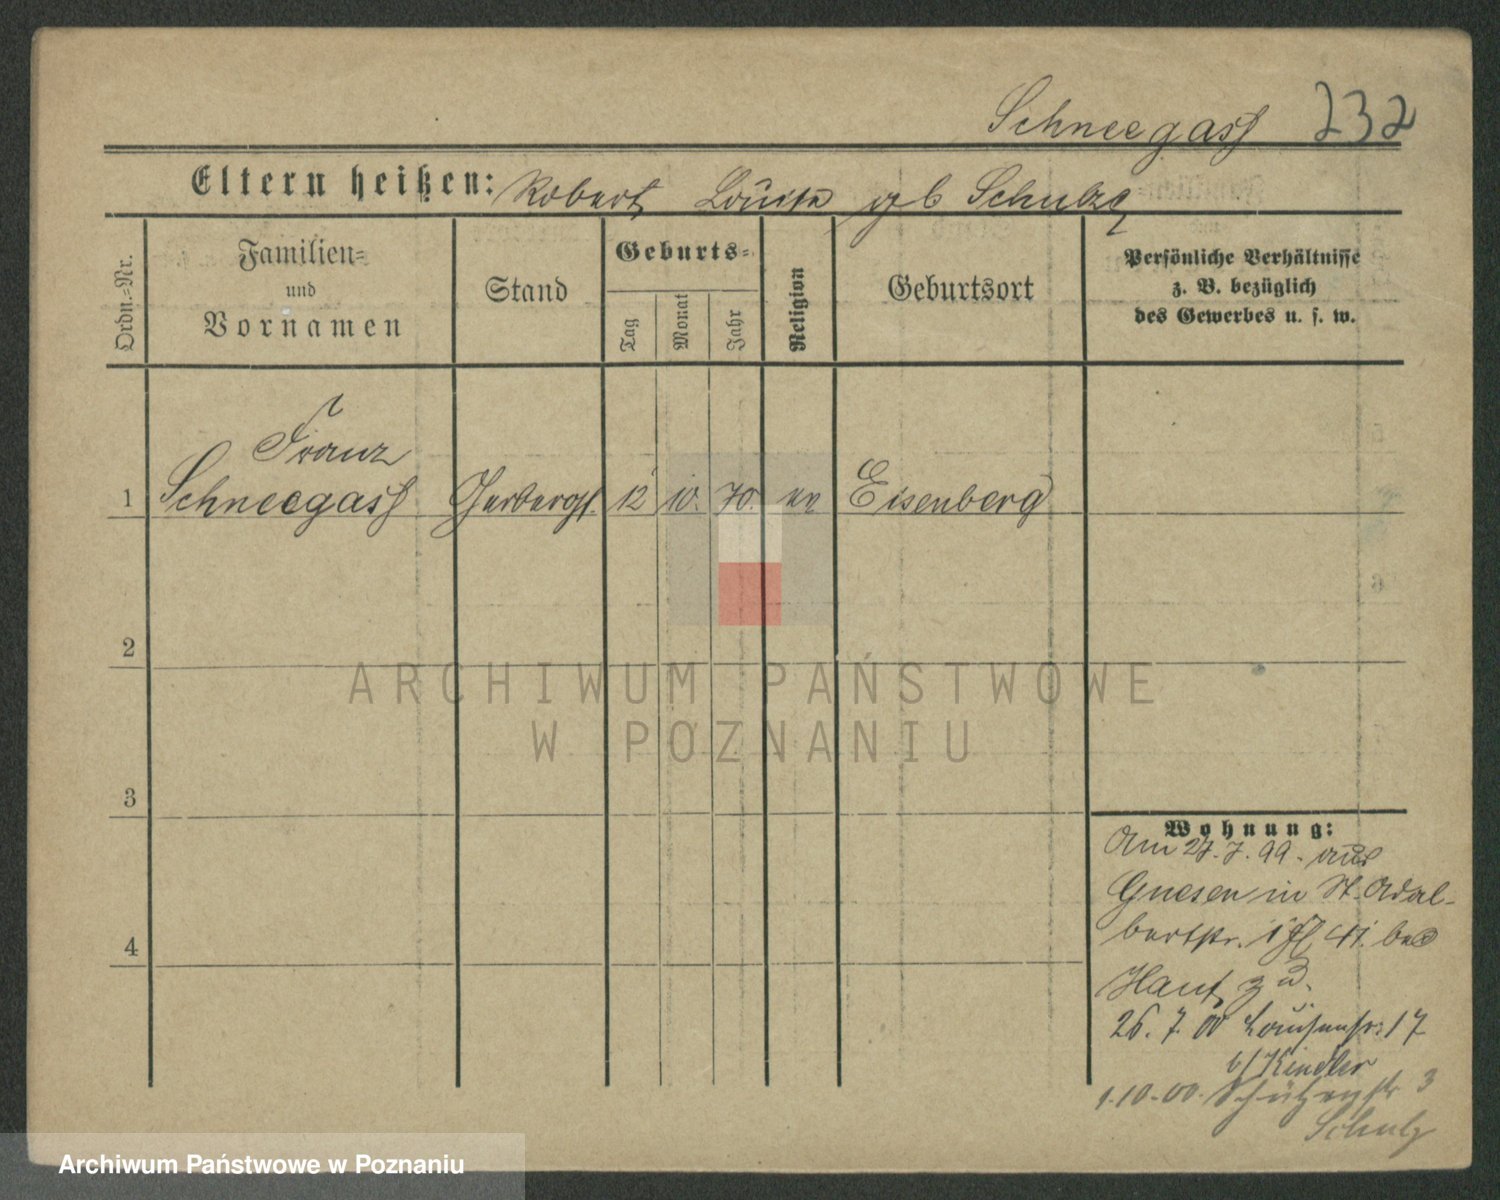 Schneegass 232
Eltern heißen: Robert Louise geb Schulze
Ordn.-Nr.
Familien-
und
Vornamen
Stand
Geburts-
Tag
Monat
Jahr
Religion
Geburtsort
Persönliche Verhältnisse
z. B. bezüglich
des Gewerbes u. s. w.
Franz
1 Schneegass 12 10. 70. ev Eisenberg
2
3
4
Wohnung:
Am 27.7.99. aus
Gnesen in St. Adal-
bertstr. bei
26. 7. 00 Louisenstr. 17
b/ Kindler
1.10.00. Schützenstr 3
Schulz
ARCHIWUM PAŃSTWOWE
W POZNANIU
Archiwum Państwowe w Poznaniu